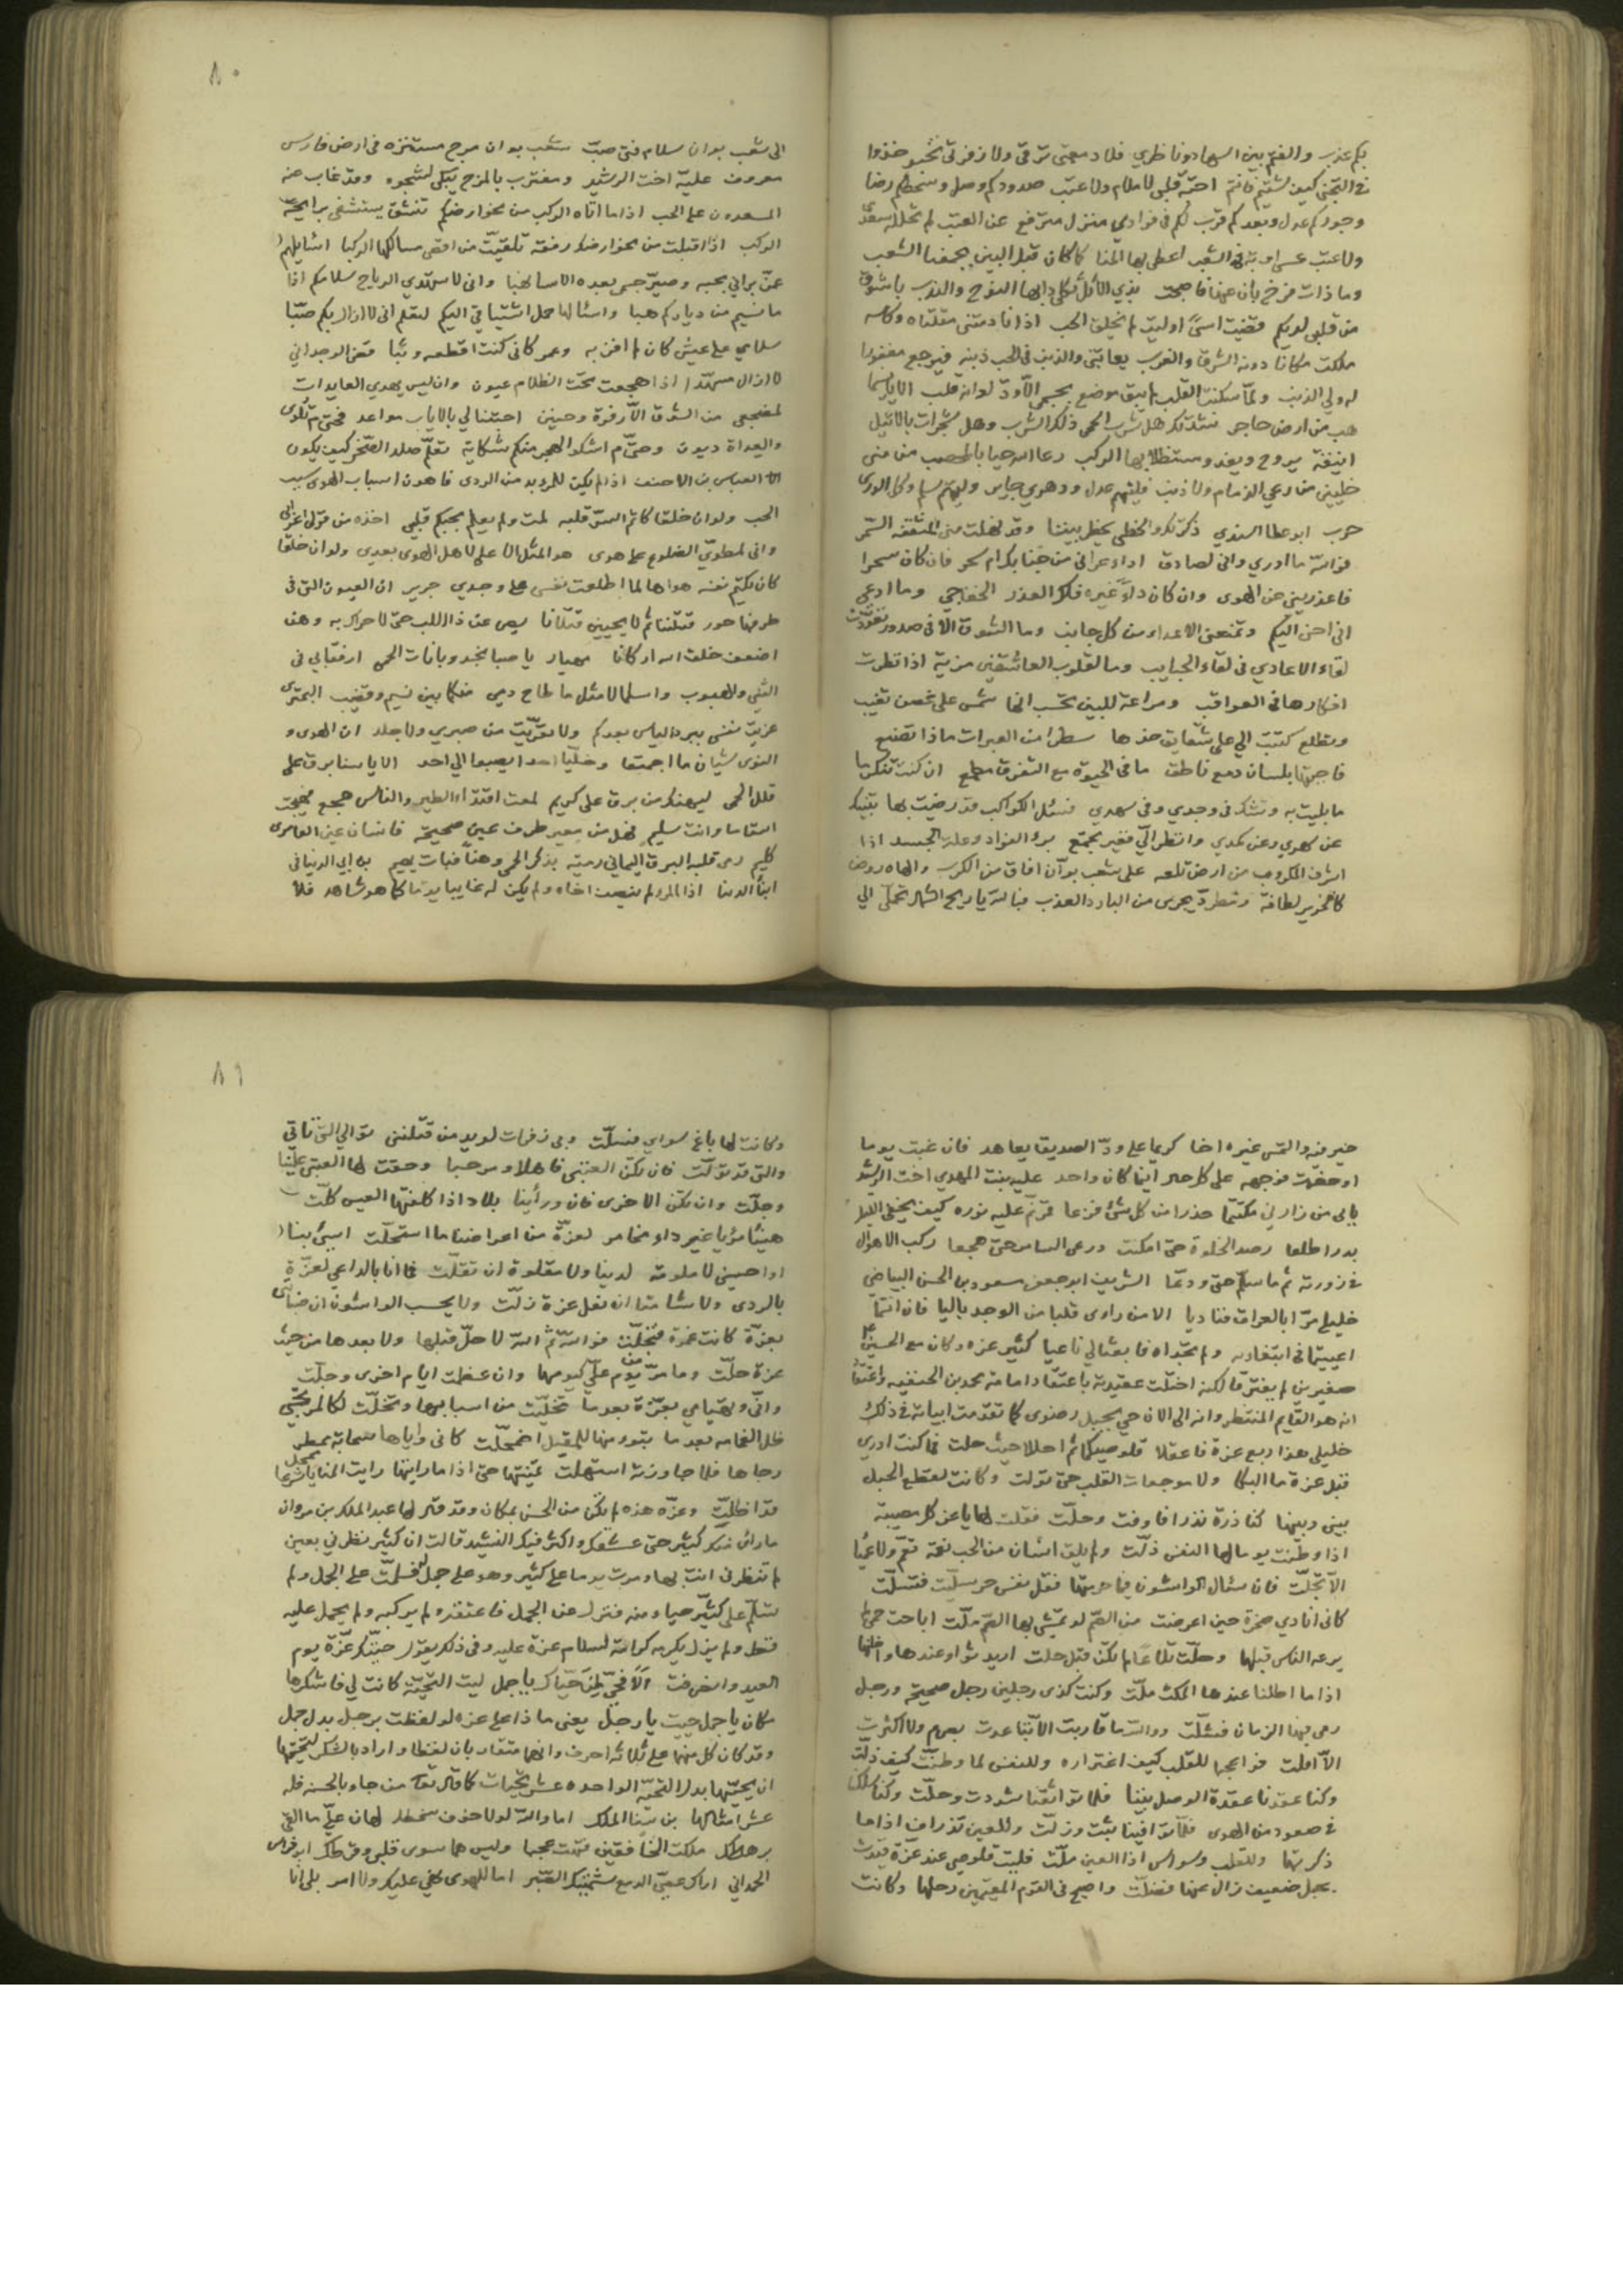 بكم عذب والغمّ بين السهاد وناظري فلا دمعتي ترقى ولا زفرتي تخبو خذوا
في التجني كيف شئتم فانتم احبّة قلبي لا ملام ولا عتب صدودكم وصل وسخطكم رضا
وجوركم عدل وبعدكم قرب لكم في فوادي منزل مترفع عن العتب لم تحلله
ولا عتب عسى اوبة الشعب اعطى بها المنا كما كان قبل البين يجمعنا الشعب
وما ذات فرخ بان عنها فاصبحت بذي الاثل ثكلى دابها النوح والندب باشوق
من قلبي لديكم فقضيت اسى اوليت لم يخلق الحب اذا نادمتني مقلتاه وكاسه
ملكت مكانا دونه الشرق والغرب يعاتبني والذنب في الحب ذنبه فيرجع مغفورا
له ولي الذنب ولما سكنت القلب لم يبق موضع بجسمي الا ودّ لو انه قلب الا يا نسيما
هب من ارض حاجر نشدتك هل سرب الحمى ذلك السرب وهل شجرات بالاثيل
انيقة يروح ويغدو مستظلا بها الركب رعا الله حيا بالمحصب من منى
خليين من رعي الذمام ولا ذنب فليتهم عدل ودهري جاير وليتهم سلم وكل الورى
حرب ابو عطا السندي ذكرتك والخطي يخطر بيننا وقد نهلت منا المثقفة السمر
فوالله ما ادري واني لصادق اداء عراني من جنابك ام سحر فان كان سحرا
فاعذريني عن الهوى وان كان داءً غيره فلك العذر الخفاجي وما ادعي
اني احن اليكم وتمنعني الاعداء من كل جانب وما الشوق الا في صدور تعودت
لقاء الاعادي في لقاء الحبايب وما لقلوب العاشقين مزية اذا نظرت
افكارها في العواقب ومراعة للبين تحسب انها شمس على غصن تغيب
وتطلع كتبت الي على شقايق خدها سطرا من العبرات ماذا تصنع
فاجبتها بلسان دمع ناطق ما في الحيوة مع التفرق مطمع ان كنت تنكر ما
ما بليت به وتشك في وجدي وفي سهدي فسئل الكواكب قد رضيت بها تنبيك
عن سهدي وعن كمدي وانظر الّي فغير مجتمع برء الفواد وعلة الجسد اذا
اشرف المكروب من ارض تلعه على شعب بوآن افاق من الكرب والهاه روض
كالحرير لطافة ومطردّ يجري من البارد العذب فبالله يا ريح الشمال تحملي الي
٨٠
الى شعب بوان سلام فتى صبّ شعب بوان مرج مستنزه في ارض فارس
معروف عليّة اخت الرشيد ومغترب بالمرج يبكي لشجوه وقد غاب عنه
المسعدون على الحب اذا ما اتاه الركب من نحو ارضكم تنشق يستشفى برايحة
الركب اذا اقبلت من نحو ارضك رفقة تلقيت من اقصى مسالكها الركبا اسايلهم
عمن براني بحبه وصير جسمي بعده الاسا نهبا واني لاستهدي الرياح سلامكم اذا
ما نسيم من دياركم هبا واسئالها حمل اشتياقي اليكم لتعلم اني لا ازال بكم صبّا
سلامي على عيش كان لم افز به وعمر كاني كنت اقطعه وثبا معن الوجداني
لا ازال مسهّدا اذا هجعت تحت الظلام عيون وان ليس يهدي العايدات
لمضجعي من الشوق الا زفرة وحنين احتنا لي بالاياب مواعد فحتى م تلوى
والعداة ديون وحتّى م اشكو الهجر منكم شكاية تعلّم صلد الصخر كيف يكون
العباس بن الاحنف اذا لم يكن للمرء بد من الردى فاهون اسباب الهوى سبب
الحب ولو ان خلقا كاتم الستر قلبه لمت ولم يعلم بحبكم قلبي اخذه من قول اعرابي
واني لمطويّ الضلوع على هوى هو المثل الاعلى لاهل الهوى بعدي ولو ان خلقا
كان يكتم نفسه هواها لما اطلعت نفسي على وجدي جرير ان العيون التي في
طرفها حور قتلننا ثم لا يحيين قتلانا يصرعن ذا اللب حتى لا حراك به وهن
اضعف خلق الله اركانا مهيار يا صبا نجد وبانات الحمى ارفقا بي في
التثني والهبوب واسلما لا مثل ما طاح دمي منكما بين نسيم وقضيب البحتري
عزيت نفسي ببرد الياس بعدكم ولا تعزيت من صبري ولا جلد ان الهوى و
النوى شيئان ما اجمتعا وخلّيا احدا يصبوا الي احد الا يا سنا برق على
قلل الحمى ليهنك من برق على كريم لمعت اقتذاء الطير والناس هجع فهيجت
اسقاما وانت سليم فهل من معير طرف عين صحيحة فانسان عين العامرى
كليم رمى قلبه البرق اليماني رمية بذكر الحمى وهناً فبات يهيم بن ابي الدنيا في
ابناء الدنيا اذا المرء لم ينصف اخاه ولم يكن له غايبا يوما كما هو شاهد فلا
خير فيه والتمس غيره اخا كريما على ودّ الصديق يعاهد فان غبت يوما
او حضرت فوجهه على كل حال اينما كان واحد علية بنت المهدي اخت الرشيد
بابي من زارني مكتتما حذرا من كل شئ فزعا قمر نم عليه نوره كيف يخفي الليل
بدرا طلعا رصد الخلوة حتى امكنت ورعى السامر حتى هجعا ركب الاهوال
في زورته ثم ما سلم حتى ودعا الشريف ابو جعفر مسعود بن الحسن البياضي
خليلي مرّا بالعراق فناديا الا من راى قلبا من الوجد باليا فان انتما
اعييتما في ابتغائه ولم تجداه فابعثا لي ناعيا كثير عزه وكان مع الحسين
صغيرين لم يفترقا لكنه اختلت عقيدته باعتقاد امامة محمد بن الحنفيه واعتقاد
انه هو القايم المنتظر وانه الى الان حي بجبل رضوى كما تقدمت ابياته في ذلك
خليلي هذا ربع عزة فاعقلا قلوصيكما ثم احللا حيث حلت فما كنت ادري
قبل عزة ما البكا ولا موجعات القلب حتى تولت وكانت لقطع الحبل
بيني وبينها كناذرة نذرا فاوفت وحلّت فقلت لها يا عز كل مصيبة
اذا وطنت يوما لها النفس ذلّت ولم يلق انسان من الحب نعة تعم ولا عميا
الّا تجلّت فان سئال الواشون فيما حرمتها فقل نفس حر سليت فتسلّت
كاني انادي صخرة حين اعرضت من الصم لو تمشي بها العصم زلّت اباحت حمى لم
يرعه الناس قبلها وحلّت تلاعا لم تكن قبل حلت اريد ثواء عندها واظنها
اذا ما اطلنا عندها المكث ملّت وكنت كذى رجلين رجل صحيحة ورجل
رمى بها الزمان فشلّت ووالله ما قاربت الا تباعدت بصرم ولا اكثرت
الّا اقلت فوا عجبا للقلب كيف اغتراره وللنفس لما وطنّت كيف ذلّت
وكنا عقدنا عقدة الوصل بيننا فلما تواثقنا شددت وحلّت وكنا سلكنا
في صعود من الهوى فلما توافينا ثبت وزلّت وللعين تذراف اذا ما
ذكرتها وللقلب وسواس اذا العين ملّت فليت قلوصي عند عزة قيدت
بحبل ضعيف زال عنها فضلّت واصبح في القوم المقيمين رحلها وكانت
٨١
وكانت لها باغ سواي فنسلّت وبي زفرات لو يد من قتلنني توالي التي تاتي
والتي قد تولّت فان تكن العتبى فاهلا ومرحبا وحقت لها العتبى علينا
وجلّت وان تكن الاخرى فان ورائنا بلاد اذا كلفتها العيس كلّت
هنيئا مرئيا غير داء مخامر لعزة من اعراضنا ما استحلّت اسيئ بنا
او احسني لا ملومة لدينا ولا مقلوة ان تقلّت فما انا بالداعي لعزّة
بالردى ولا شامتا ان نعل عزة زلّت ولا يحسب الواشون ان صبابتي
بعزّة كانت غمرة فتجلّت فوالله ثم الله لا حلّ قبلها ولا بعدها من حيث
عزة حلّت وما مرّ من يوم عليّ كيومها وان عظمت ايام اخرى وجلّت
واني وتهيامي بعزّة بعدما تخلّيت من اسبابها وتخلّت لكالمرتجي
ظل الغمامه بعد ما تبوء منها للمقيل اضمحلّت كاني واياها سحابة ممحل
رجاها فلما جاوزته استهلت تمنيتها حتى اذا ما رايتها رايت المنايا شرعا
قد اظلّت وعزه هذه لم تكن من الحسن بمكان وقد قال لها عبد الملك بن مروان
ما راى منك كثير حتى عشقك واكثر فيك النشيد قالت ان كثير نظر لي بعين
لم تنظر لي انت بها ومرت يوما على كثير وهو على جمل فسلمت على الجمل ولم
تسلّم على كثيّر حياء منه فنزل عن الجمل فاعتقه ولم يركبه ولم يحمل عليه
قط ولم يزل يكرمه كرامة لسلام عزة عليه وفي ذلك يقول حيّتك عزّة يوم
العيد وانصرفت فحيّ من حيّاك يا جمل ليت التحيّة كانت لي فاشكرها
مكان يا جمل حييت يا رجل يعني ماذا على عزه لو لفظت برجل بدل جمل
وقد كان كل منهما على ثلاثه احرف وانهما متقاربان لفظا واراد بالشكر لتحيّتها
ان يحيّيها بدل التحيّة الواحده عشر تحيات كما قال تعا من جاء بالحسنة فله
عشر امثالها بن سنا الملك اما والله لولا خوف سخطك لهان عليّ ما القى
برهطك ملكت الخافقين فتهت عجبا وليس هما سوى قلبي وقرطك ابو فراس
الحمداني اراك عصيّ الدمع شيمتك الصّبر اما للهوى نهي عليك ولا امر بلى انا